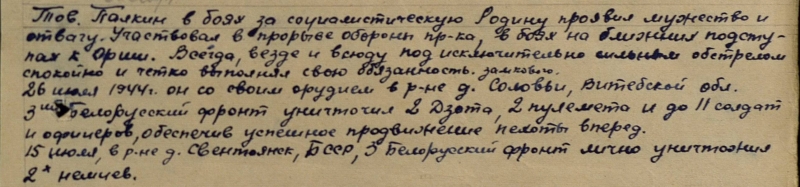 Тов. Палкин в боях за социалистическую Родину проявил мужество и
отвагу. Участвовал в прорыве обороны пр-ка, в боях на ближних подсту-
пах к Орши. Всегда, везде и всюду под исключительно сильным обстрелом
спокойно и четко выполнял свою обязанность замкового.
26 июля 1944г. он со своим орудием в р-не д. Соловьи, Витебской обл.
3ий Белорусский фронт уничтожил 2 Дзота, 2 пулемета и до 11 солдат
и офицеров, обеспечив успешное продвижение пехоты вперед.
15 июля, в р-не д. Свентоянск, БССР, 3 Белорусский фронт лично уничтожил
2х немцев.